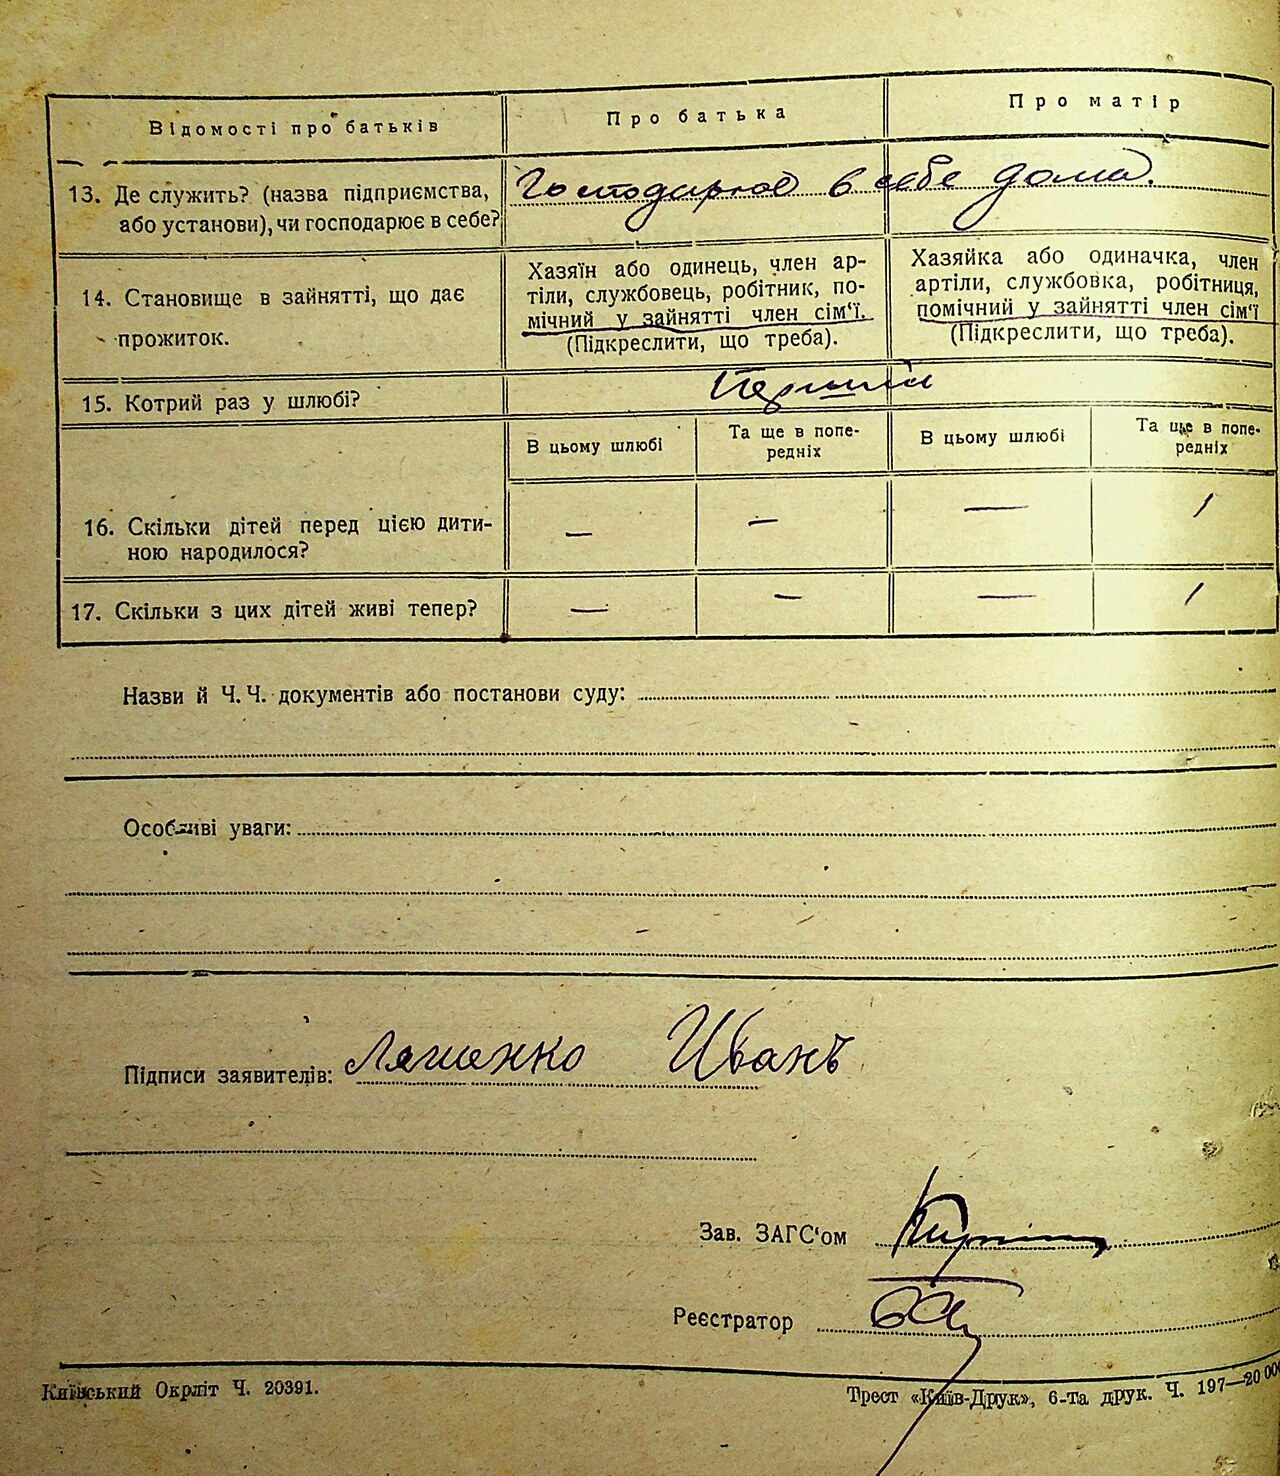 Відомості про батьків
Про батька
Про матір
13. Де служить? (назва підприємства,
або установи), чи господарює в себе?
Господарює в себе дома.
14. Становище в зайнятті, що дає
прожиток.
Хазяїн або одинець, член ар-
тіли, службовець, робітник, по-
мічний у зайнятті член сім'ї.
(Підкреслити, що треба).
Хазяйка або одиначка, член
артіли, службовка, робітниця,
помічний у зайнятті член сім'ї
(Підкреслити, що треба).
15. Котрий раз у шлюбі?
Перший
В цьому шлюбі
Та ще в попе-
редніх
В цьому шлюбі
Та ще в попе-
редніх
16. Скільки дітей перед цією дити-
ною народилося?
— — — 1
17. Скільки з цих дітей живі тепер?
— — — 1
Назви й Ч.Ч. документів або постанови суду:
Особливі уваги:
Підписи заявителів: Ляшенко Иванъ
Зав. ЗАГС'ом
Реєстратор
Київський Окрліт Ч. 20391.
Трест «Київ-Друк», 6-та друк. Ч. 197—20 000